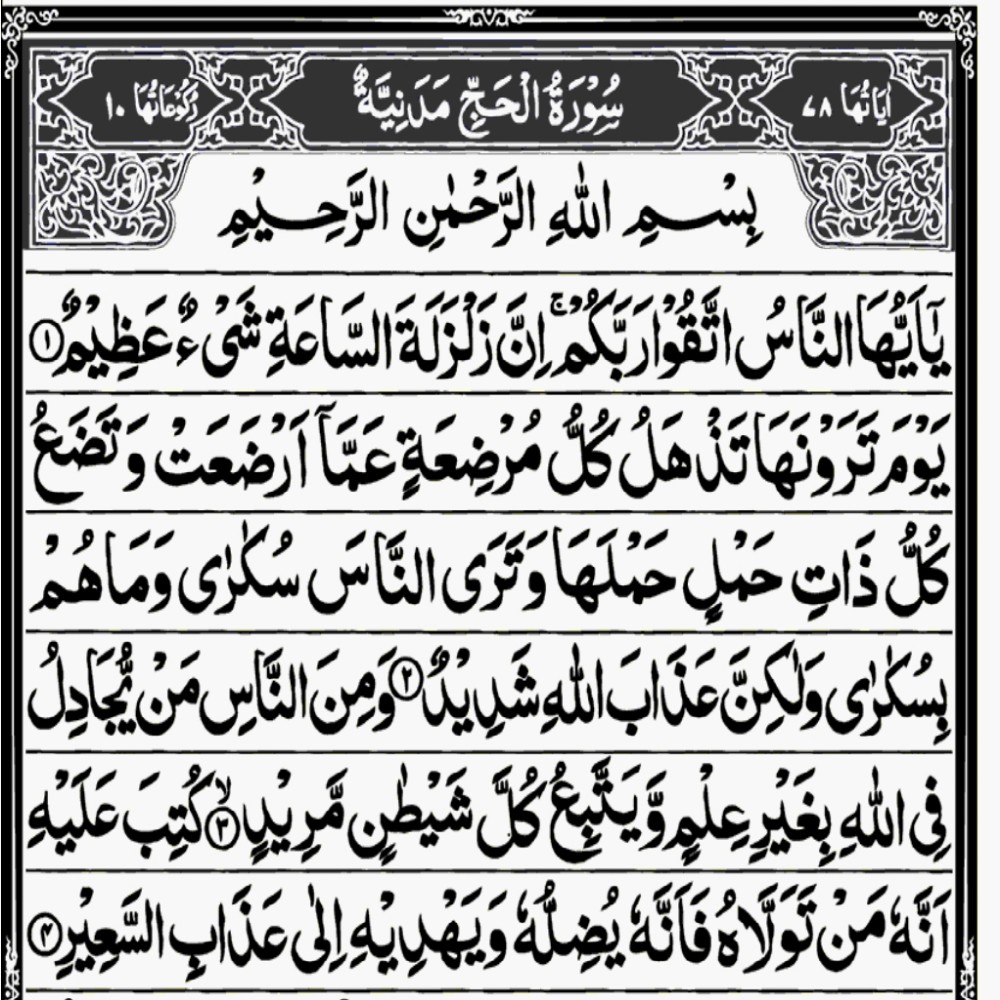 اٰيَاتُهَا ٧٨ سُوْرَةُ الْحَجِّ مَدَنِيَّةٌ رُكُوْعَاتُهَا ١٠
بِسْمِ اللهِ الرَّحْمٰنِ الرَّحِيْمِ
يٰٓاَيُّهَا النَّاسُ اتَّقُوْا رَبَّكُمْ ۚ اِنَّ زَلْزَلَةَ السَّاعَةِ شَىْءٌ عَظِيْمٌ ١
يَوْمَ تَرَوْنَهَا تَذْهَلُ كُلُّ مُرْضِعَةٍ عَمَّآ اَرْضَعَتْ وَتَضَعُ
كُلُّ ذَاتِ حَمْلٍ حَمْلَهَا وَتَرَى النَّاسَ سُكٰرٰى وَمَا هُمْ
بِسُكٰرٰى وَلٰكِنَّ عَذَابَ اللهِ شَدِيْدٌ ٢ وَمِنَ النَّاسِ مَنْ يُّجَادِلُ
فِى اللهِ بِغَيْرِ عِلْمٍ وَّيَتَّبِعُ كُلَّ شَيْطٰنٍ مَّرِيْدٍ ۙ ٣ كُتِبَ عَلَيْهِ
اَنَّهٗ مَنْ تَوَلَّاهُ فَاَنَّهٗ يُضِلُّهٗ وَيَهْدِيْهِ اِلٰى عَذَابِ السَّعِيْرِ ۴